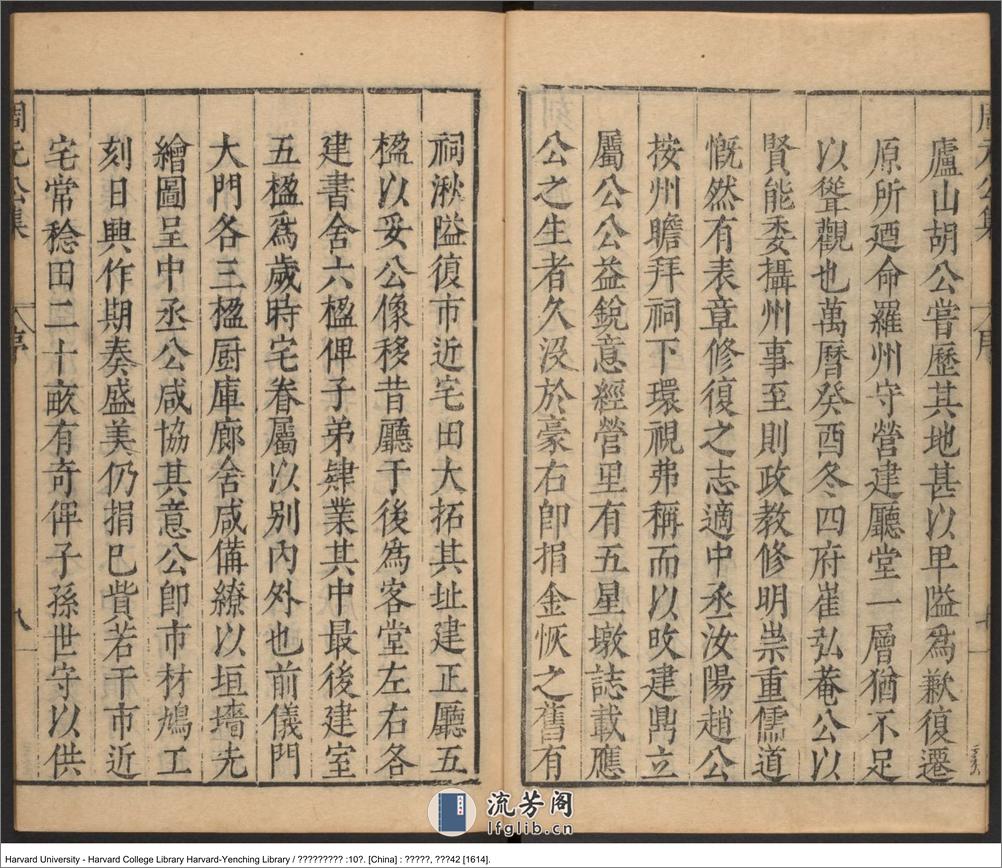 廬山胡公嘗歷其地甚以卑隘爲歉復遷
原所廼命羅州守營建廳堂一層猶不足
以聳觀也萬曆癸酉冬四府崔弘菴公以
賢能委攝州事至則政教修明崇重儒道
慨然有表章修復之志適中丞汝陽趙公
按州瞻拜祠下環視弗稱而以攺建鼎立
屬公公益銳意經營里有五星墩誌載應
公之生者久沒於豪右卽捐金恢之舊有
周元公集
序
八
祠湫隘復市近宅田大拓其址建正廳五
楹以妥公像移昔廳于後爲客堂左右各
建書舍六楹俾子弟肄業其中最後建室
五楹爲歲時宅眷屬以別內外也前儀門
大門各三楹厨庫廊舍咸備繚以垣墻先
繪圖呈中丞公咸協其意公卽市材鳩工
刻日興作期奏盛美仍捐已貲若干市近
宅常稔田二十畝有奇俾子孫世守以供
流芳阁
lfglib.cn
Harvard University - Harvard College Library Harvard-Yenching Library / ????????? :10?. [China] : ?????, ???42 [1614].